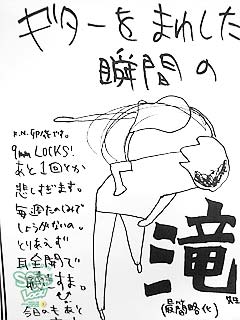 ギターをまわした
瞬間の
R.N.卵焼です。
9mm LOCKS!
あと1回とか
悲しすぎます。
毎週たのしみで
しょうがないの。
とりあえず
耳全開で
すま。
今日もあと
滝
(最簡略化)